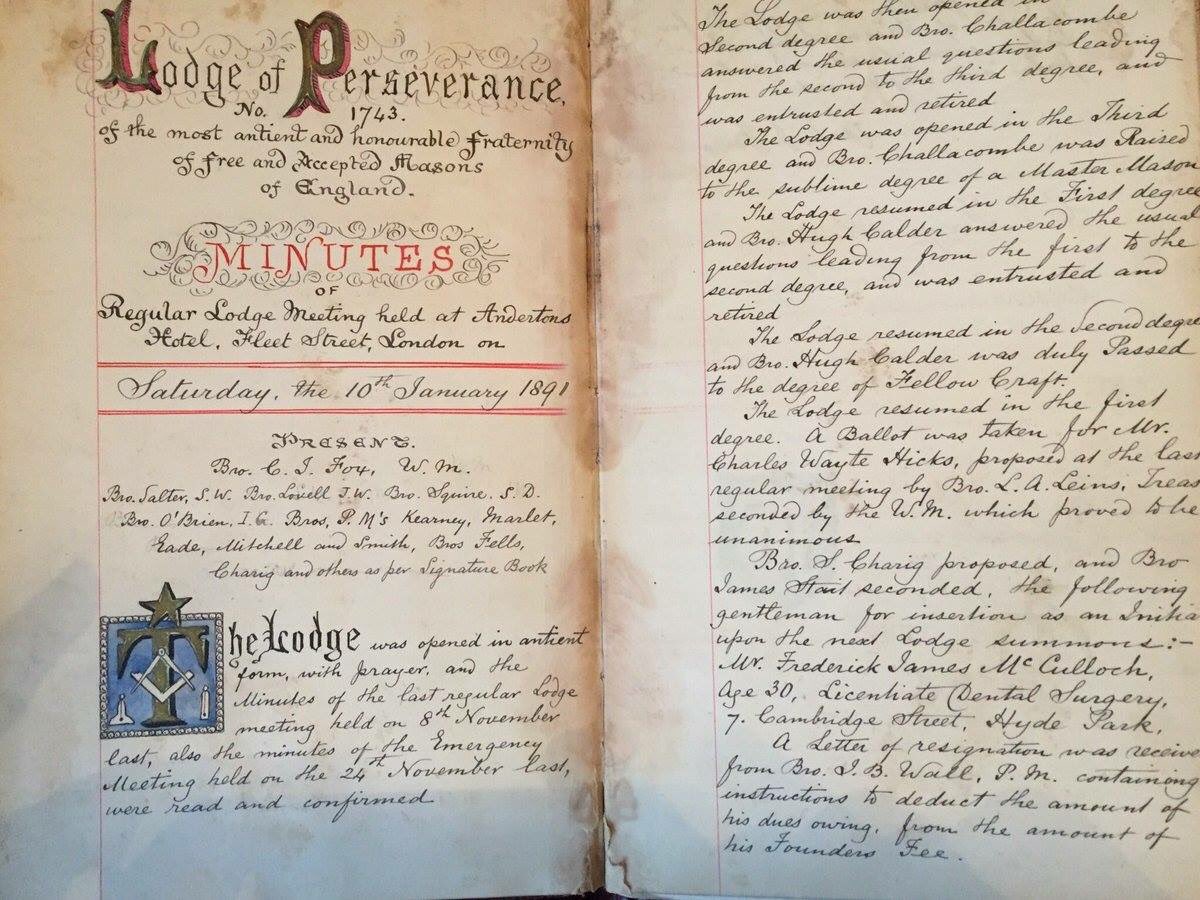 Lodge of Perseverance.
No. 1743.
of the most antient and honourable Fraternity
of Free and Accepted Masons
of England.
MINUTES
OF
Regular Lodge Meeting held at Andertons
Hotel, Fleet Street, London on
Saturday, the 10th January 1891
PRESENT.
Bro. C. J. Fox, W. M.
Bro. Salter, S.W. Bro. Lovell J.W. Bro. Squire. S. D.
Bro. O'Brien, I.G. Bros, P.M's Kearney, Marlet,
Eade, Mitchell and Smith, Bros Fells,
Charig and others as per Signature Book
The Lodge was opened in antient
form, with prayer, and the
Minutes of the last regular Lodge
meeting held on 8th November
last, also the minutes of the Emergency
Meeting held on the 24st November last,
were read and confirmed
The Lodge was then opened in
Second degree and Bro. Challacombe
answered the usual questions leading
from the second to the third degree, and
was entrusted and retired
The Lodge was opened in the Third
degree and Bro. Challacombe was Raised
to the sublime degree of a Master Mason
The Lodge resumed in the First degree
and Bro. Hugh Calder answered the usual
questions leading from the first to the
second degree, and was entrusted and
retired
The Lodge resumed in the Second degre
and Bro. Hugh Calder was duly Passed
to the degree of Fellow Craft.
The Lodge resumed in the first
degree. A Ballot was taken for Mr.
Charles Wayte Hicks, proposed at the last
regular meeting by Bro. L. A. Leins, Treas
seconded by the W.M. which proved to be
unanimous
Bro. S. Charig proposed, and Bro
James Stait seconded, the following
gentleman for insertion as an Initia
upon the next Lodge summons:-
Mr. Frederick James McCulloch,
Age 30, Licentiate Dental Surgery,
7. Cambridge Street, Hyde Park,
A Letter of resignation was receive
from Bro. J. B. Wall, P.M. containing
instructions to deduct the amount of
his dues owing, from the amount of
his Founders Fee.